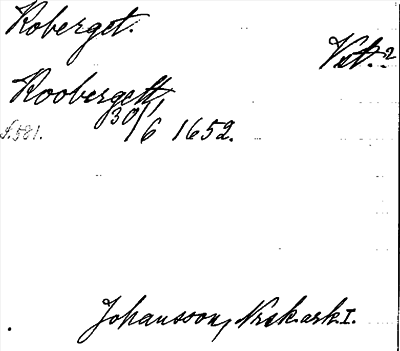 Koberget.
Vst. 2
Kooberget
30/6 1652.
f. 581.
Johansson, Nrsk. ark. I.